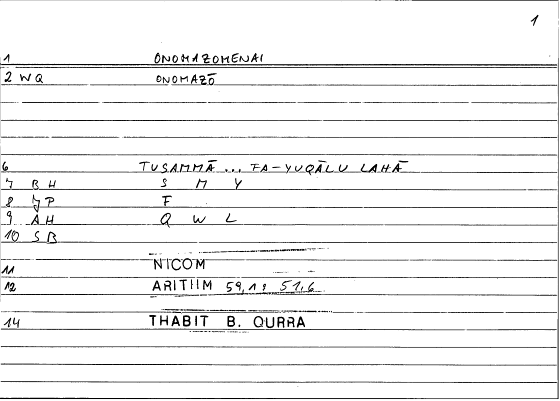 1
1 ONOMAZOMENAI
2 WQ ONOMAZŌ
6 TUSAMMĀ ... FA-YUQĀLU LAHĀ
7 BH S M Y
8 JP F
9 AH Q W L
10 SB
11 NICOM
12 ARITIIM 59,1; 51,6
14 THABIT B. QURRA